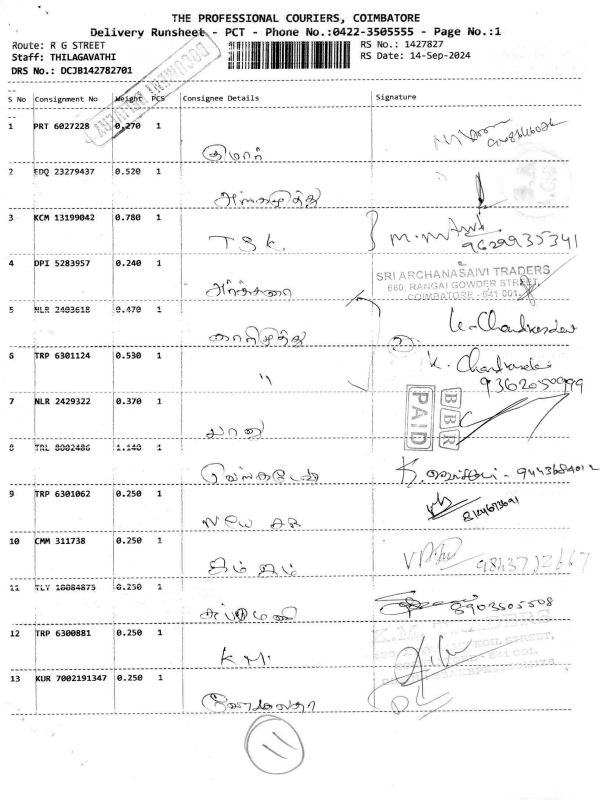 THE PROFESSIONAL COURIERS, COIMBATORE
Delivery Runsheet - PCT - Phone No.:0422-3505555 - Page No.:1
Route: R G STREET
RS No.: 1427827
Staff: THILAGAVATHI
RS Date: 14-Sep-2024
DRS No.: DCJB142782701
S No Consignment No Weight PCS Consignee Details Signature
1 PRT 6027228 0.270 1
குமார்
2 EDQ 23279437 0.520 1
3 KCM 13199042 0.780 1
T S K
9629935341
4 DPI 5283957 0.240 1
அர்ச்சனா
SRI ARCHANASAIVI TRADERS
660, RANGAI GOWDER STREET,
COIMBATORE - 641 001.
5 NLR 2403618 0.470 1
காரிமுத்து
K. Chandrasekar
6 TRP 6301124 0.530 1
"
K. Chandrasekar
9362050999
7 NLR 2429322 0.370 1
பானு
BBR
PAID
8 TRL 8002486 1.140 1
வெங்கடேஷ்
9 TRP 6301062 0.250 1
New AR
10 CMM 311738 0.250 1
ஜம் ஜம்
11 TLY 10084875 0.250 1
சுப்ரமணி
8903505508
12 TRP 6300881 0.250 1
K M
13 KUR 7002191347 0.250 1
11